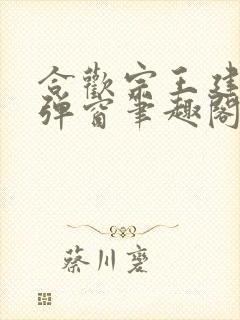 合歡宗王建
彈窗筆趣閣
蔡川寒